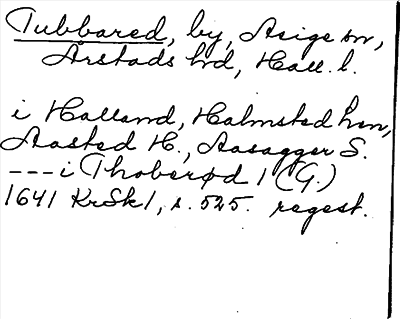 Tubbared, by, Asige sn,
Årstads hd, Hall. l.
i Halland, Halmsted Len,
Aasted H., Aasagger S.
---i Thoberød 1 (G.)
1641 KrSk1, s. 525. regest.